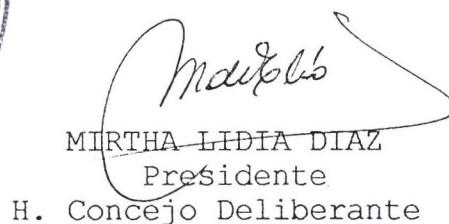 MIRTHA LIDIA DIAZ
Presidente
H. Concejo Deliberante